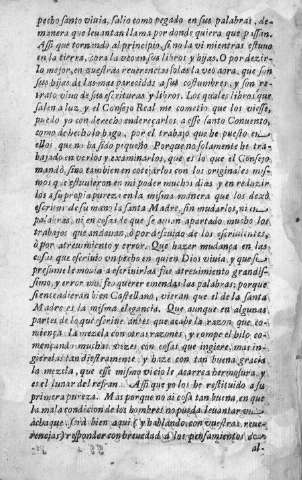 pecho santo viuia, salio como pegado en sus palabras, de-
manera que leuantan llama por donde quiera que passan.
Assi que tornando al principio, sino la vi mientras estuuo
en la tierra, aora la veo en sus libros y hijas. O por dezir-
lo mejor, en vuestras reuerencias solas la veo aora, que son
sus hijas de las mas parecidas a sus costumbres, y son re-
trato viuo de sus escrituras y libros. Los quales libros que
salen a luz, y el Consejo Real me cometio que los viesse,
puedo yo con derecho endereçarlos a esse santo Conuento,
como de hecho lo hago, por el trabajo que he puesto en
ellos que no ha sido pequeño. Porque no solamente he tra-
bajado en verlos y examinarlos, que es lo que el Consejo
mandò, sino tambien en cotejarlos con los originales mis-
mos que estuuieron en mi poder muchos dias, y en reduzir-
los a su propia pureza en la misma manera que los dexò
escritos de su mano la santa Madre, sin mudarlos, ni en
palabras, ni en cosas de que se auian apartado mucho los
traslados que andauan, ò por descuido de los escriuientes,
ò por atreuimiento y error. Que hazer mudança en las
cosas que escriuio vn pecho en quien Dios viuia, y que se
presume le mouia a escriuirlas fue atreuimiento grandis-
simo, y error muy feo querer emendar las palabras; porque
si entendieran bien Castellano, vieran que el de la santa
Madre es la misma elegancia. Que aunque en algunas
partes de lo que escriue antes que acabe la razon que co-
miença la mezcla con otras razones, y rompe el hilo co-
mençando muchas vezes con cosas que ingiere, mas in-
gierelas tan diestramente y haze con tan buena gracia
la mezcla, que esse mismo vicio le acarrea hermosura, y
es el lunar del refran. Assi que yo los he restituido a su
primera pureza. Mas porque no ai cosa tan buena, en que
la mala condicion de los hombres no pueda leuantar vn
achaque, serà bien aqui (y hablando con vuestras reue-
rencias) responder con breuedad a los pensamientos de
al-